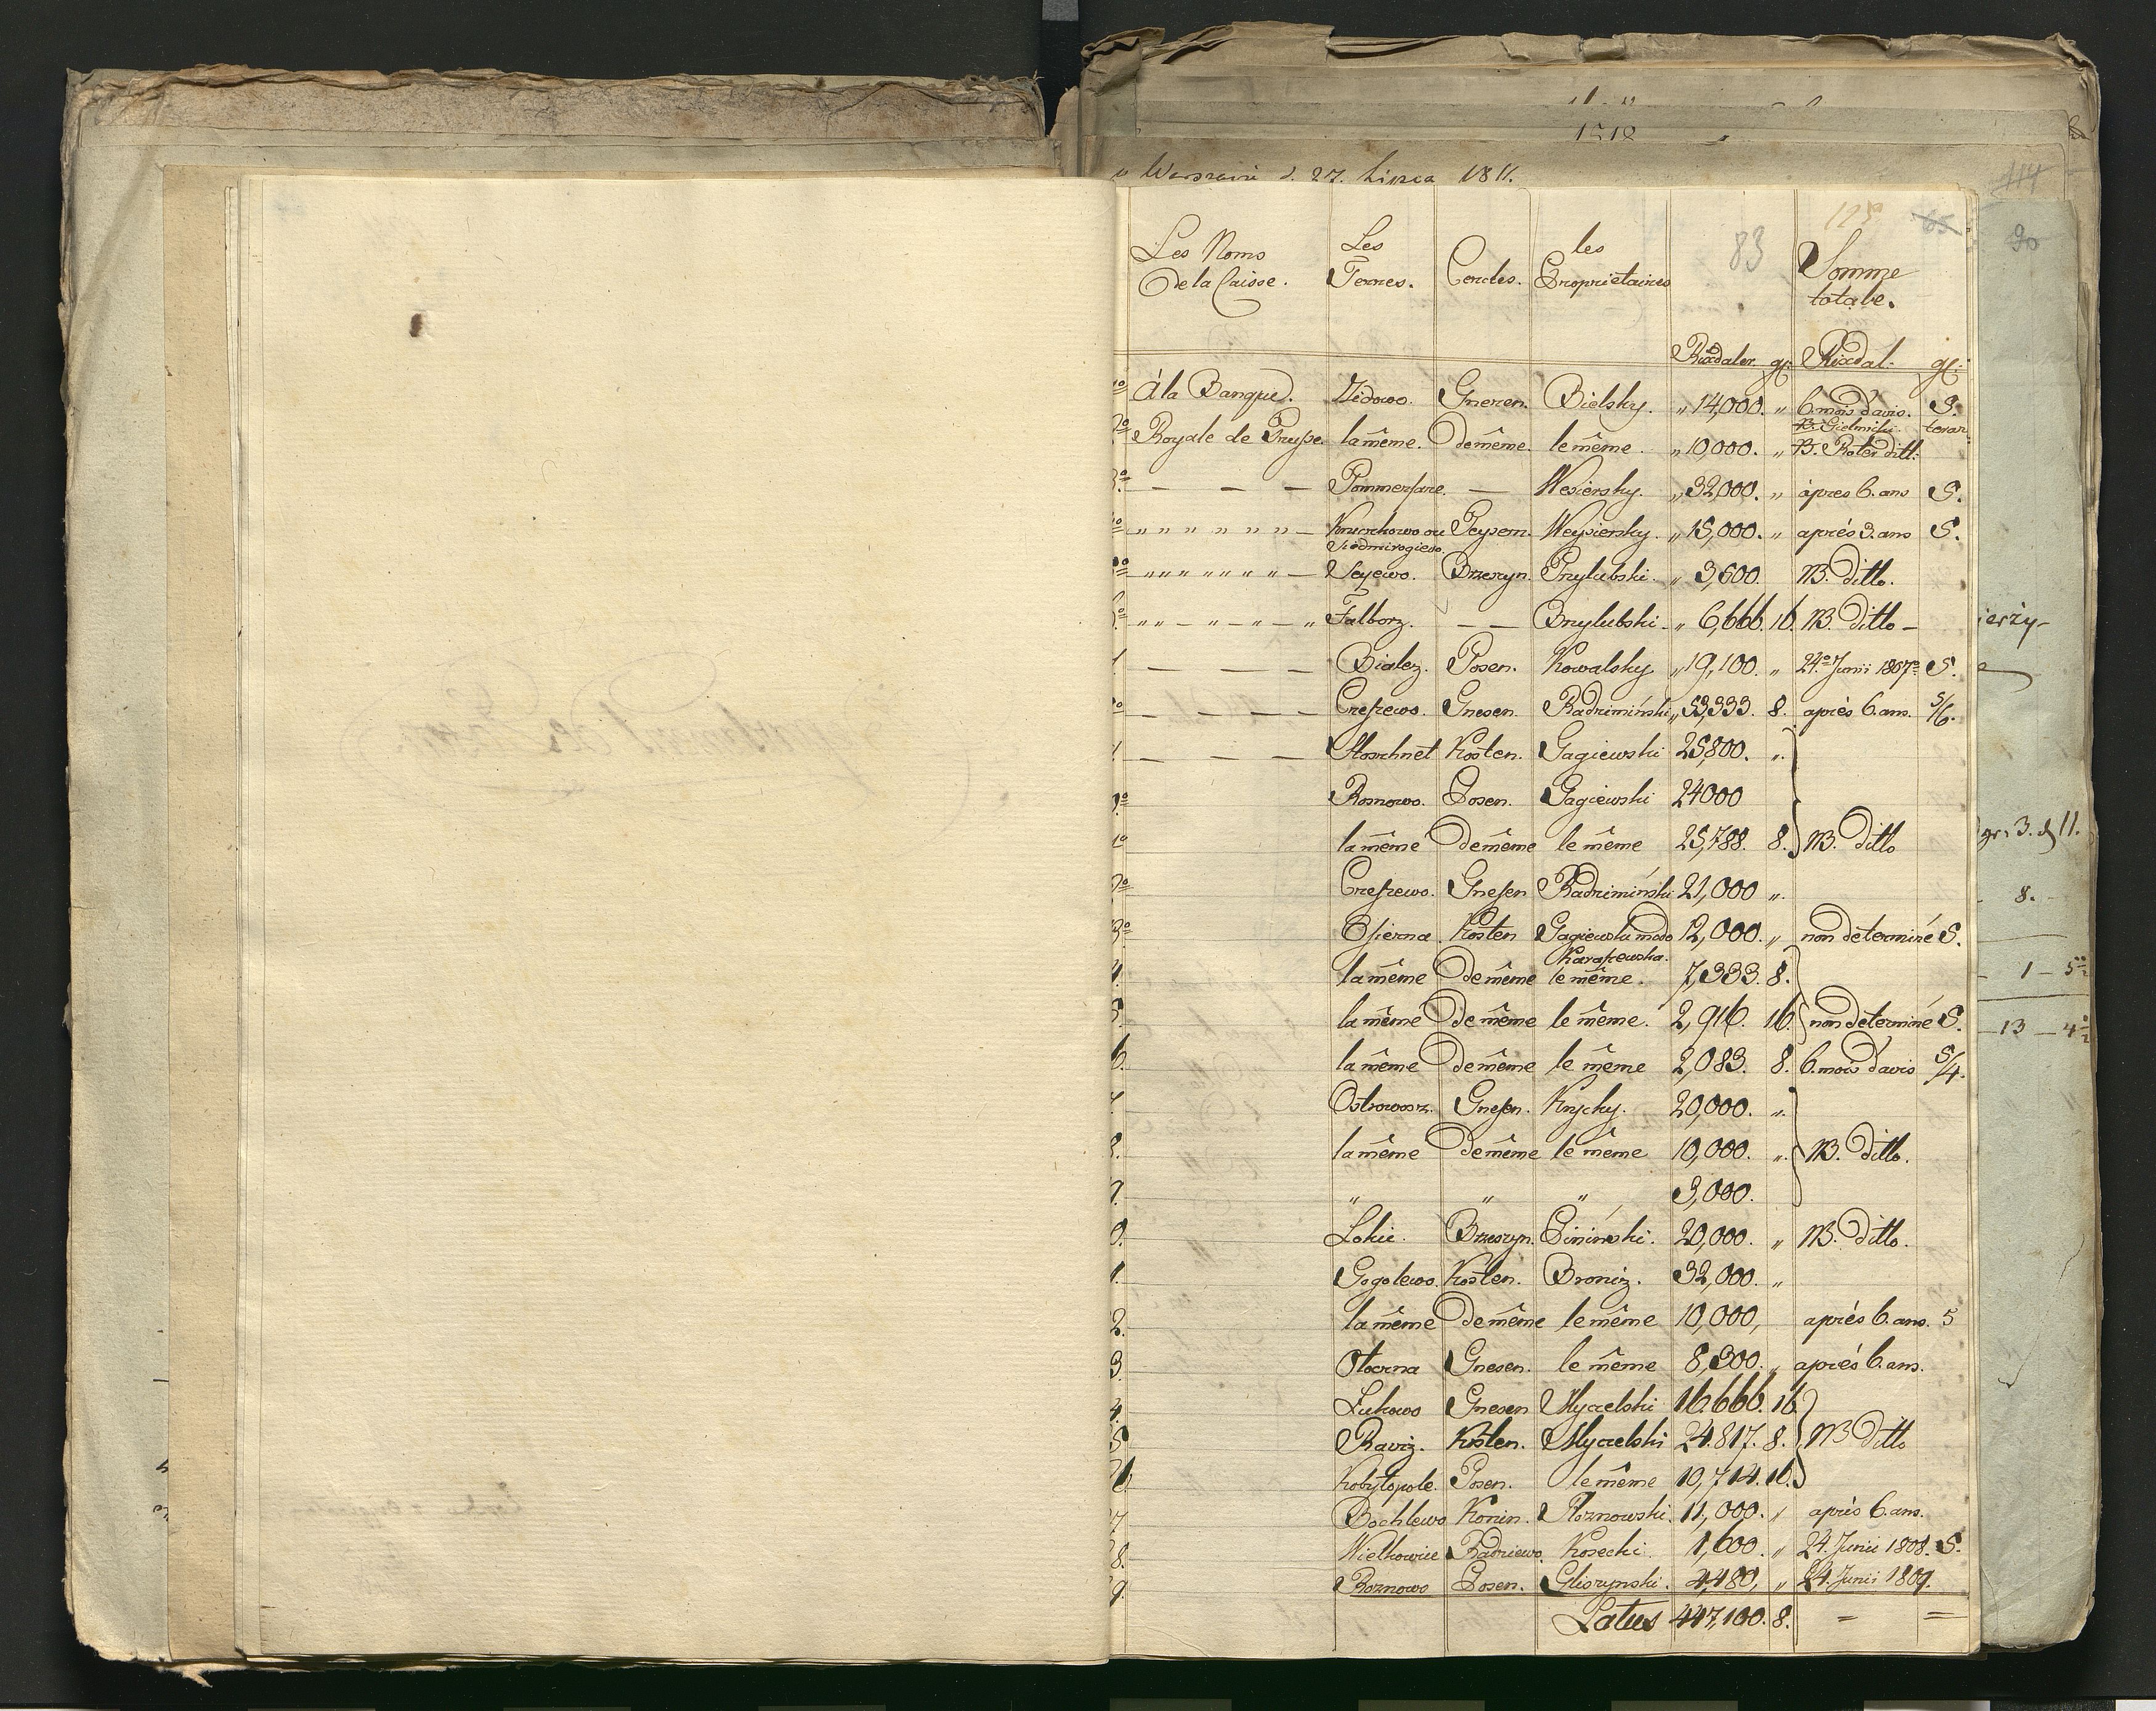 w Warszawie d. 27. Lipca 1811.
114
90
125
83
Les Noms De la Caisse. Les Terres. Cercles. les Proprietaires Somme totale.
Rixdaler. gr: Rixdal: gr:
1º à la Banque. Zidowo. Gnesen. Bielsky. „ 14,000. „ 6. mois d'avis. S.
2º Royale de Prusse. la même. de même. le même. „ 10,000. „ B. Roter ditt:
3º — — — Pommerfare. — Wesiersky. „ 32,000. „ àpres 6. ans S.
4º „ „ „ „ „ „ — ou Peysern. Weysiersky. „ 15,000. „ aprés 3. ans S.
5º „ „ „ „ „ „ „ — Seyewo. Brzeszyn. Przylubski. „ 3,600. NB. ditto.
6º „ „ — „ — „ — „ Falborz. — — Przylubski. „ 6,666. 16. NB. ditto —
7 — — — Bialez. Posen. Kowalsky „ 19,100. „ 24º Junii 1807º S.
8º — — — — Czeszewo. Gnesen. Radzimiński „ 53,333. 8. aprés 6. ans. 5/6.
— — — Kosten. Gagiewski 25,800. „
10º Rosnowo. Posen. Gagiewski 24000
11º la même de même le même 25,788. 8. NB. ditto
12º Czeszewo. Gnesen Radzimiński 21,000 „
13º Osierna. Kosten Gagiewski modo 12,000. „ non determiné S.
Karaszewska.
14. la même de même le même. 7,333. 8.
15. la même de même le même. 2,916. 16. non determiné S.
16. la même de même le même 2,083. 8. 6. mois d'avis 5/4.
17. Gnesen. Krycky. 20,000. „
18. la même de même le même 10,000. „ NB. ditto.
19. „ „ „ 3,000.
20. Lokie. Brzeszyn. 20,000. „ NB. ditto.
21. Gogolewo. Kosten. Broniz. 32,000. „
22. la même de même le même 10,000, aprés 6. ans. 5
23. Otoczna Gnesen. le même 8,300. „ aprés 6. ans.
24. Lukowo Gnesen Mycielski 16.666. 16
25 Raviz. Kosten. Mycielski 24.817. 8. NB ditto
26 Kobylopole. Posen. le même 10,714. 16.
27 Bochlewo Konin. 11,000. „ aprés 6. ans.
28. Radziewo. Kosecki. 1,600. „ 24. Junii 1808. S.
29. Roznowo Posen. Gliszynski. 4,480, „ 24. Junii 1809.
Latus 447,100. 8. = =
ierży-
gr: 3. d 11.
8.
1 —
13 —